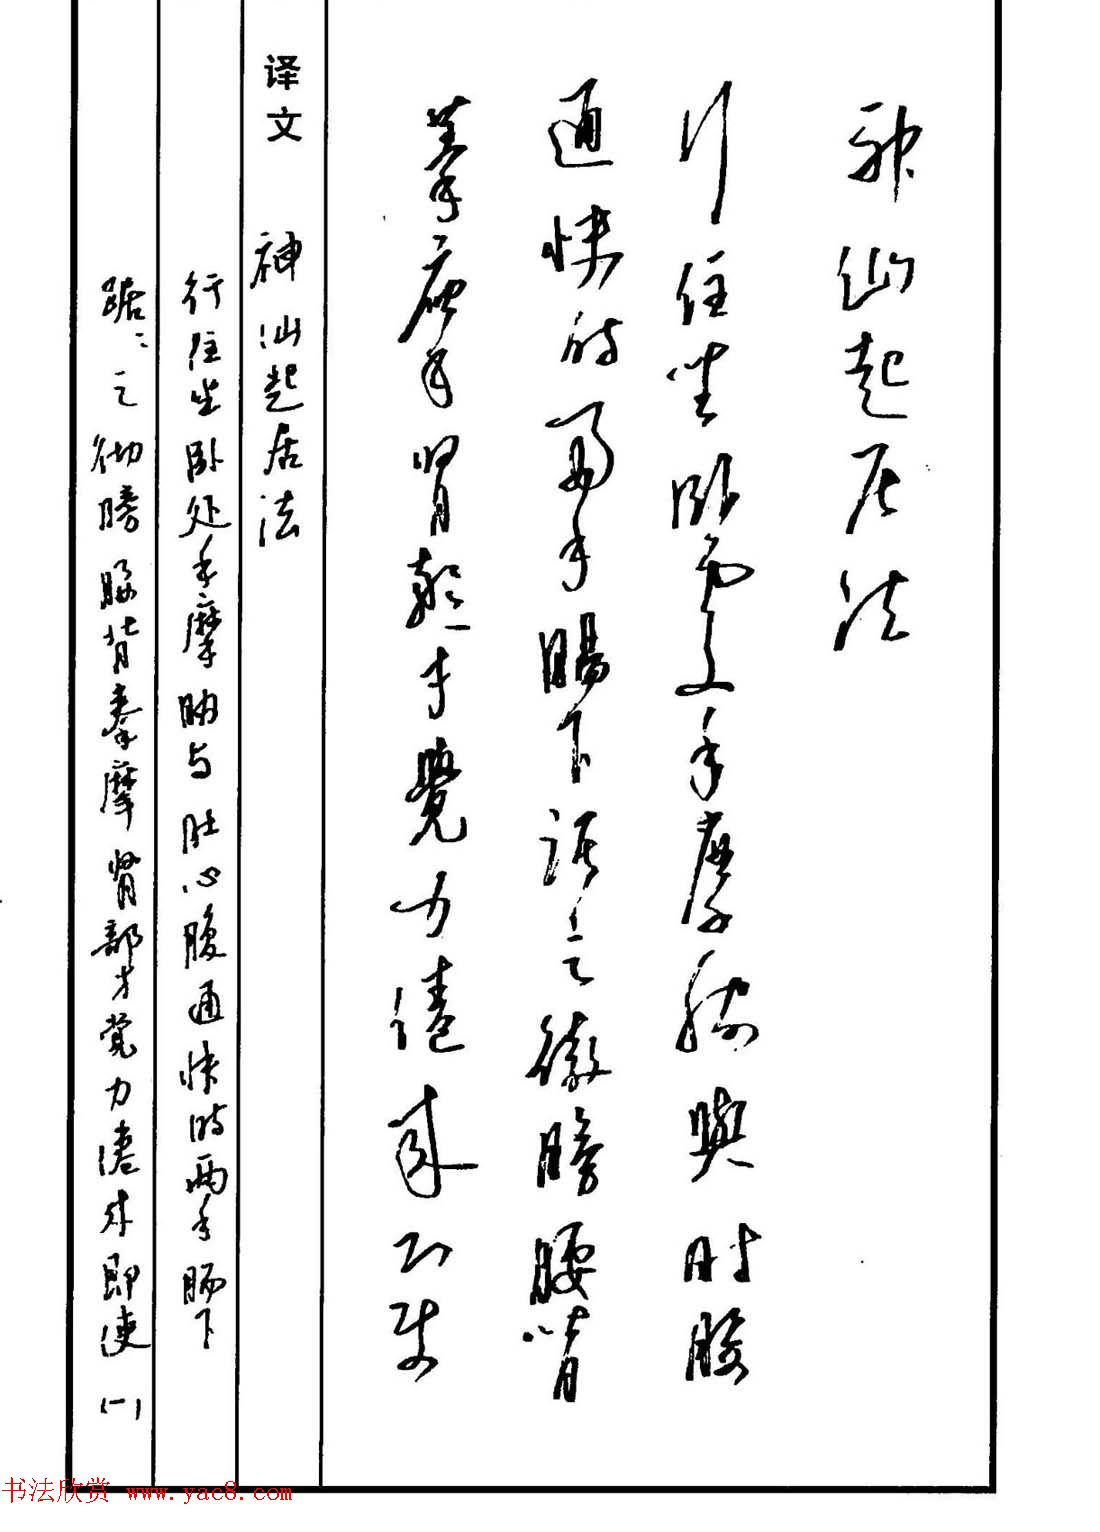 神仙起居法
行住坐卧處手摩胁與肚腹
通快时兩手腸下踞之徹膀腰背
拳摩肾部才覺力倦来即使
译文
神仙起居法
行住坐卧处手摩胁与肚心腹通快时两手肠下
踞:之彻膀腰背拳摩肾部才觉力倦来即使(一)
书法欣赏 www.yac8.com